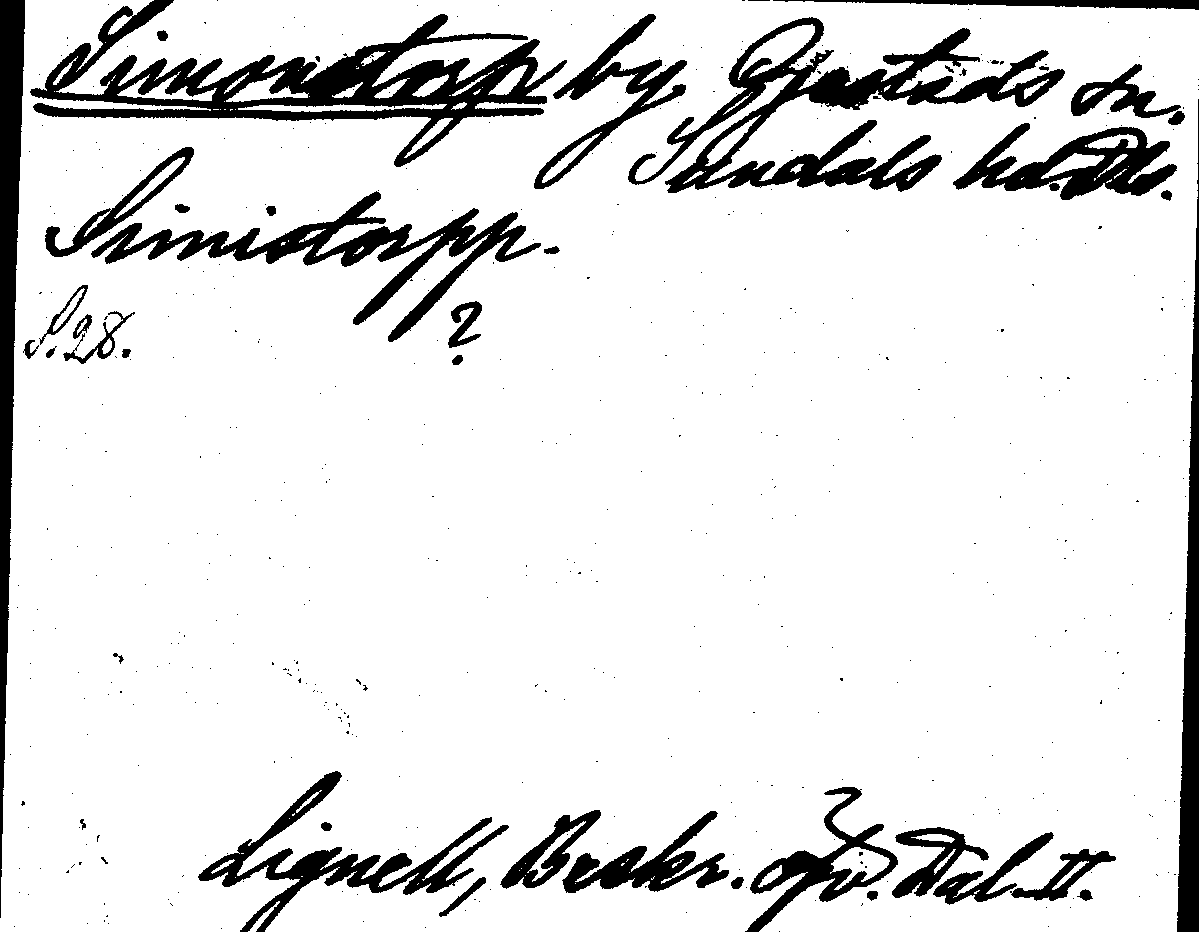 Simonstorp by Gestads sn.
Sundals hd. Dls.
Simistorpp.
S. 28. ?
Lignell, Beskr. öfv. Dal. II.